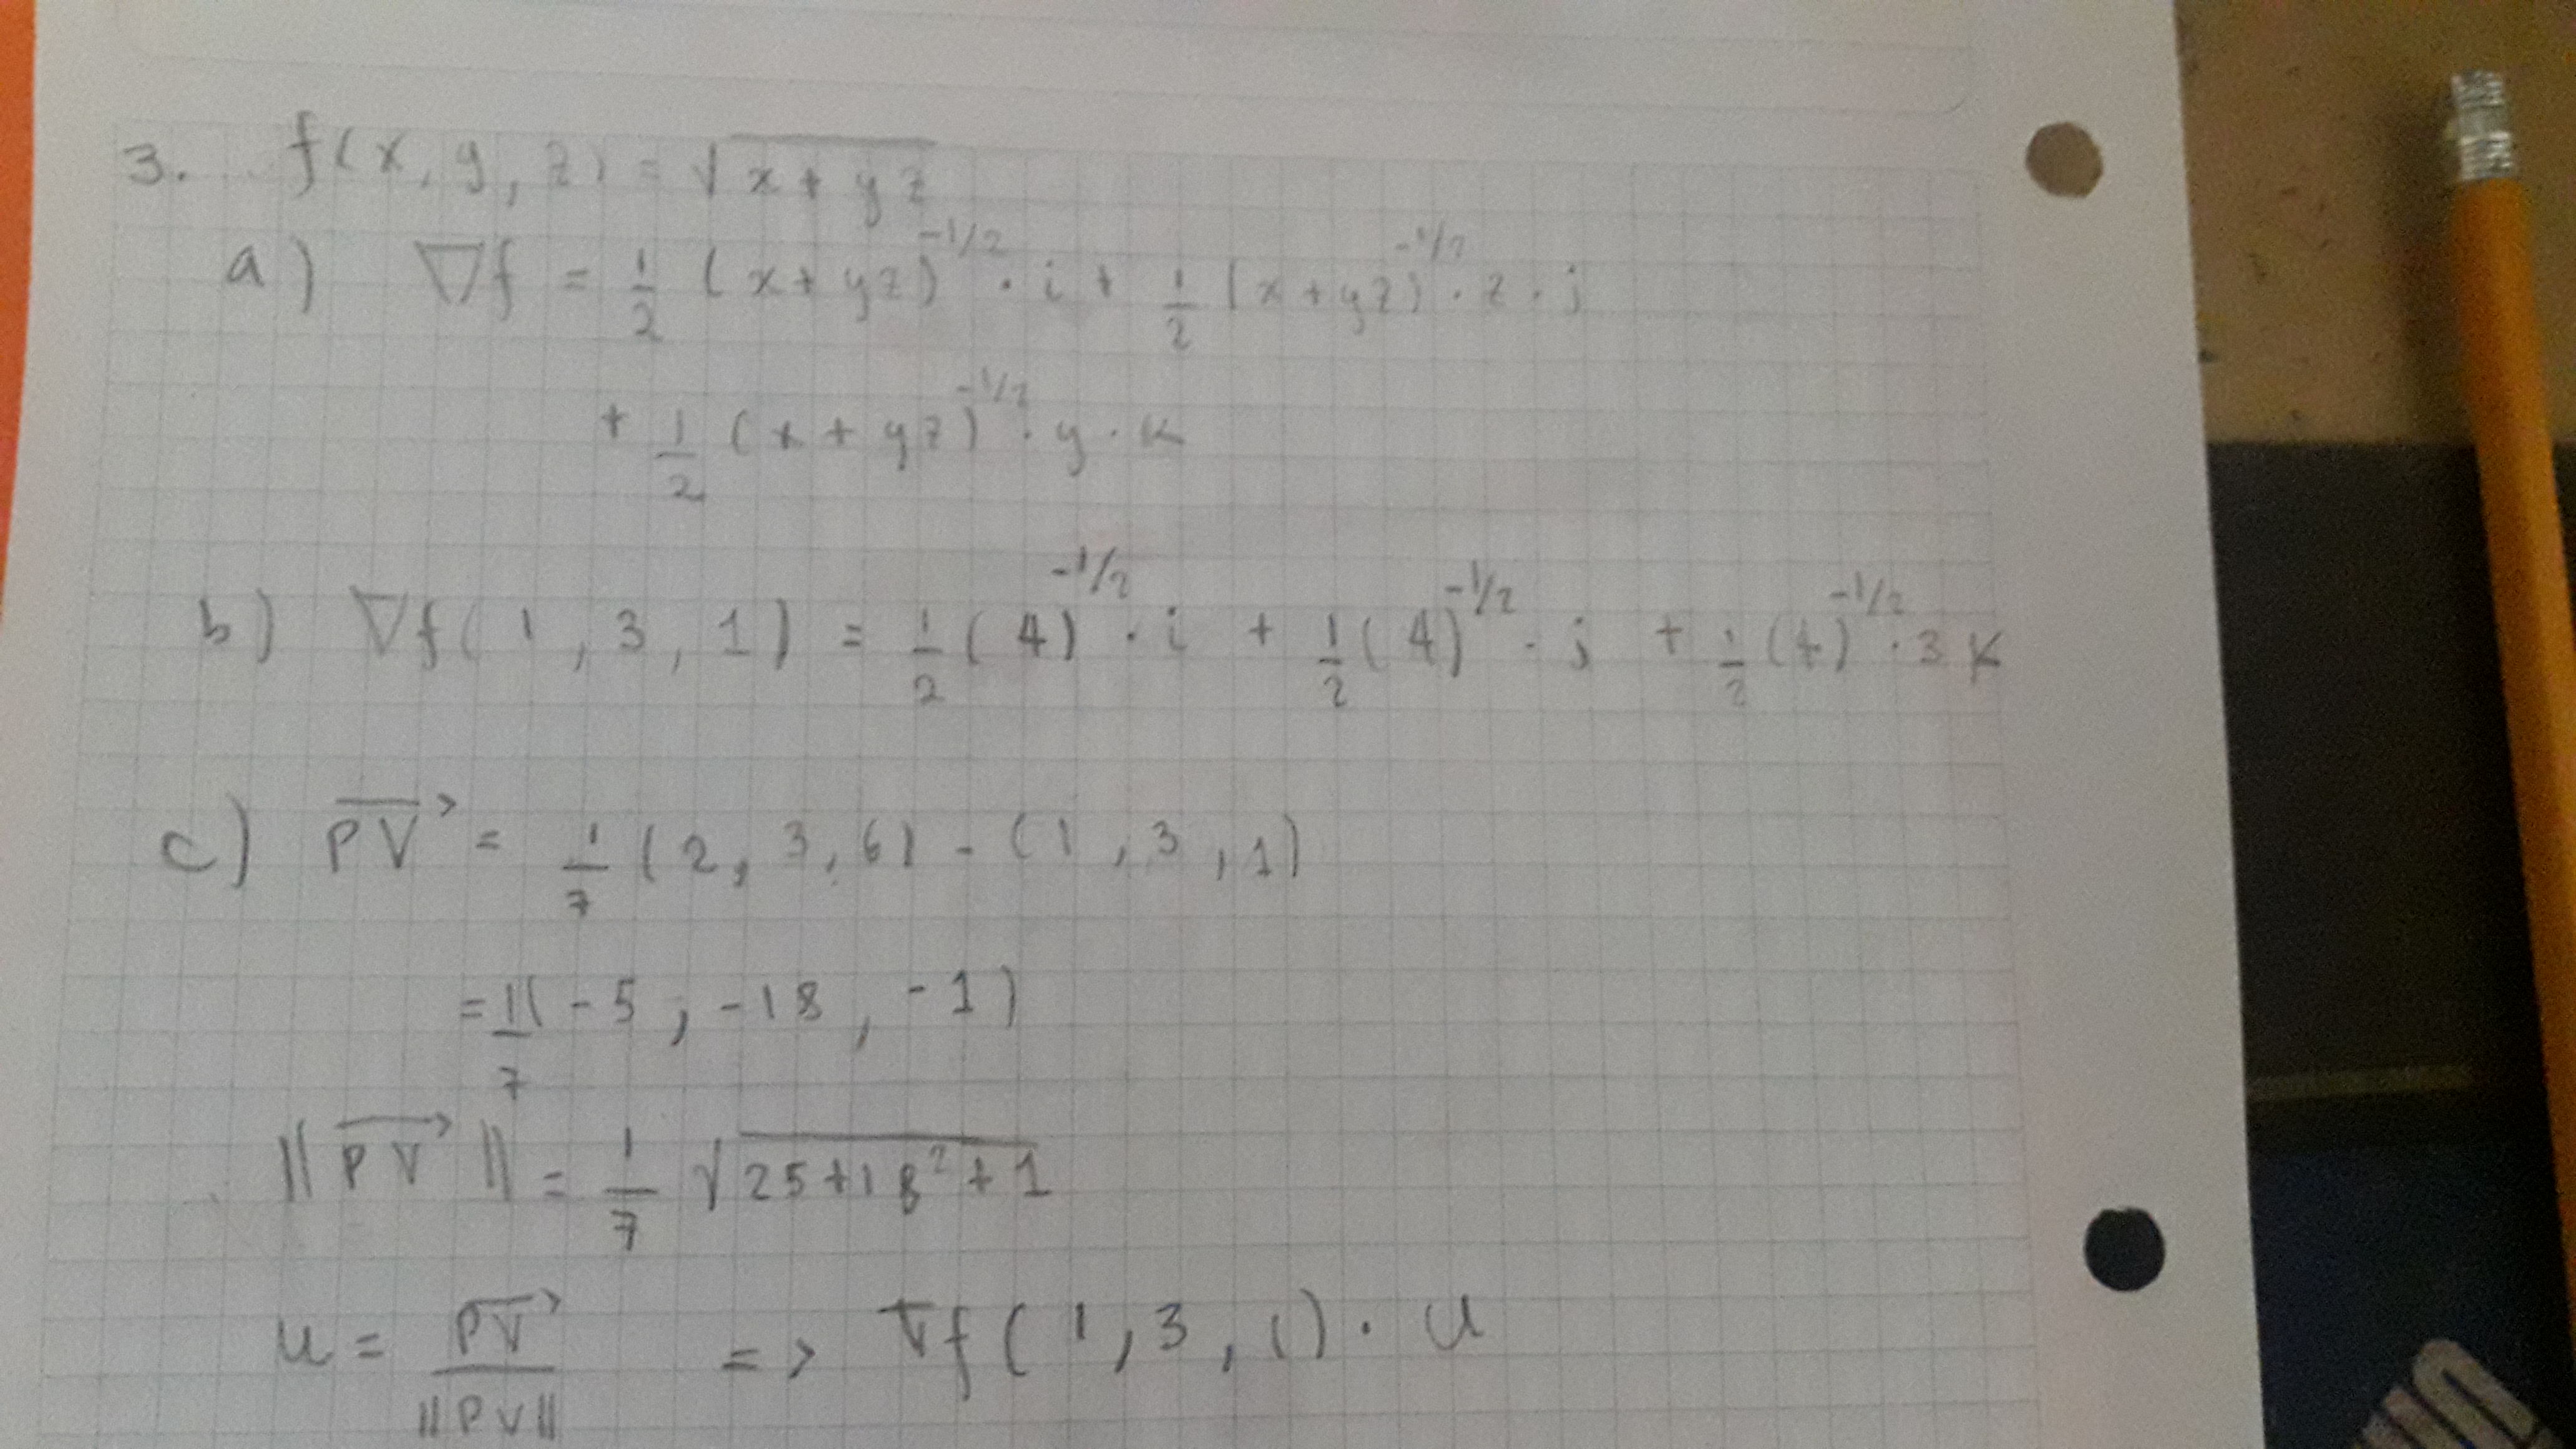 3. f(x,y,z) = √x+yz
a) ∇f = 1/2 (x+yz)^-1/2 · i + 1/2 (x+yz)^-1/2 · z · j
+ 1/2 (x+yz)^-1/2 · y · k
b) ∇f(1,3,1) = 1/2 (4)^-1/2 · i + 1/2 (4)^-1/2 · j + 1/2 (4)^-1/2 · 3 k
c) PV = 1/7 (2,3,6) - (1,3,1)
= 1/7 (-5, -18, -1)
||PV|| = 1/7 √25+18²+1
u = PV/||PV|| => ∇f(1,3,1) · u